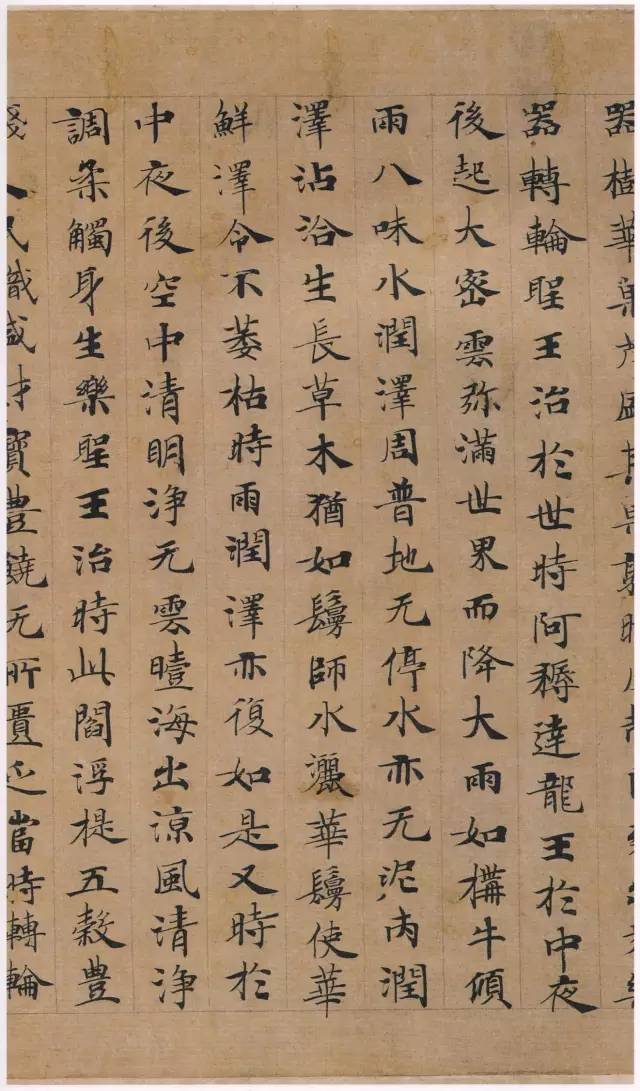 器華菓盛其菓時
器轉輪聖王治於世時阿耨達龍王於中夜
後起大密雲弥滿世界而降大雨如構牛傾
雨八味水潤澤周普地无停水亦无泥潤
澤沾洽生長草木猶如鬘師水灑華鬘使華
鮮澤令不萎枯時雨潤澤亦復如是又時於
中夜後空中清明浄无雲曀海出涼風清淨
調柔觸身生樂聖王治時此閻浮提五穀豊
賤人民熾盛財寶豊饒无所匱乏當時轉輪